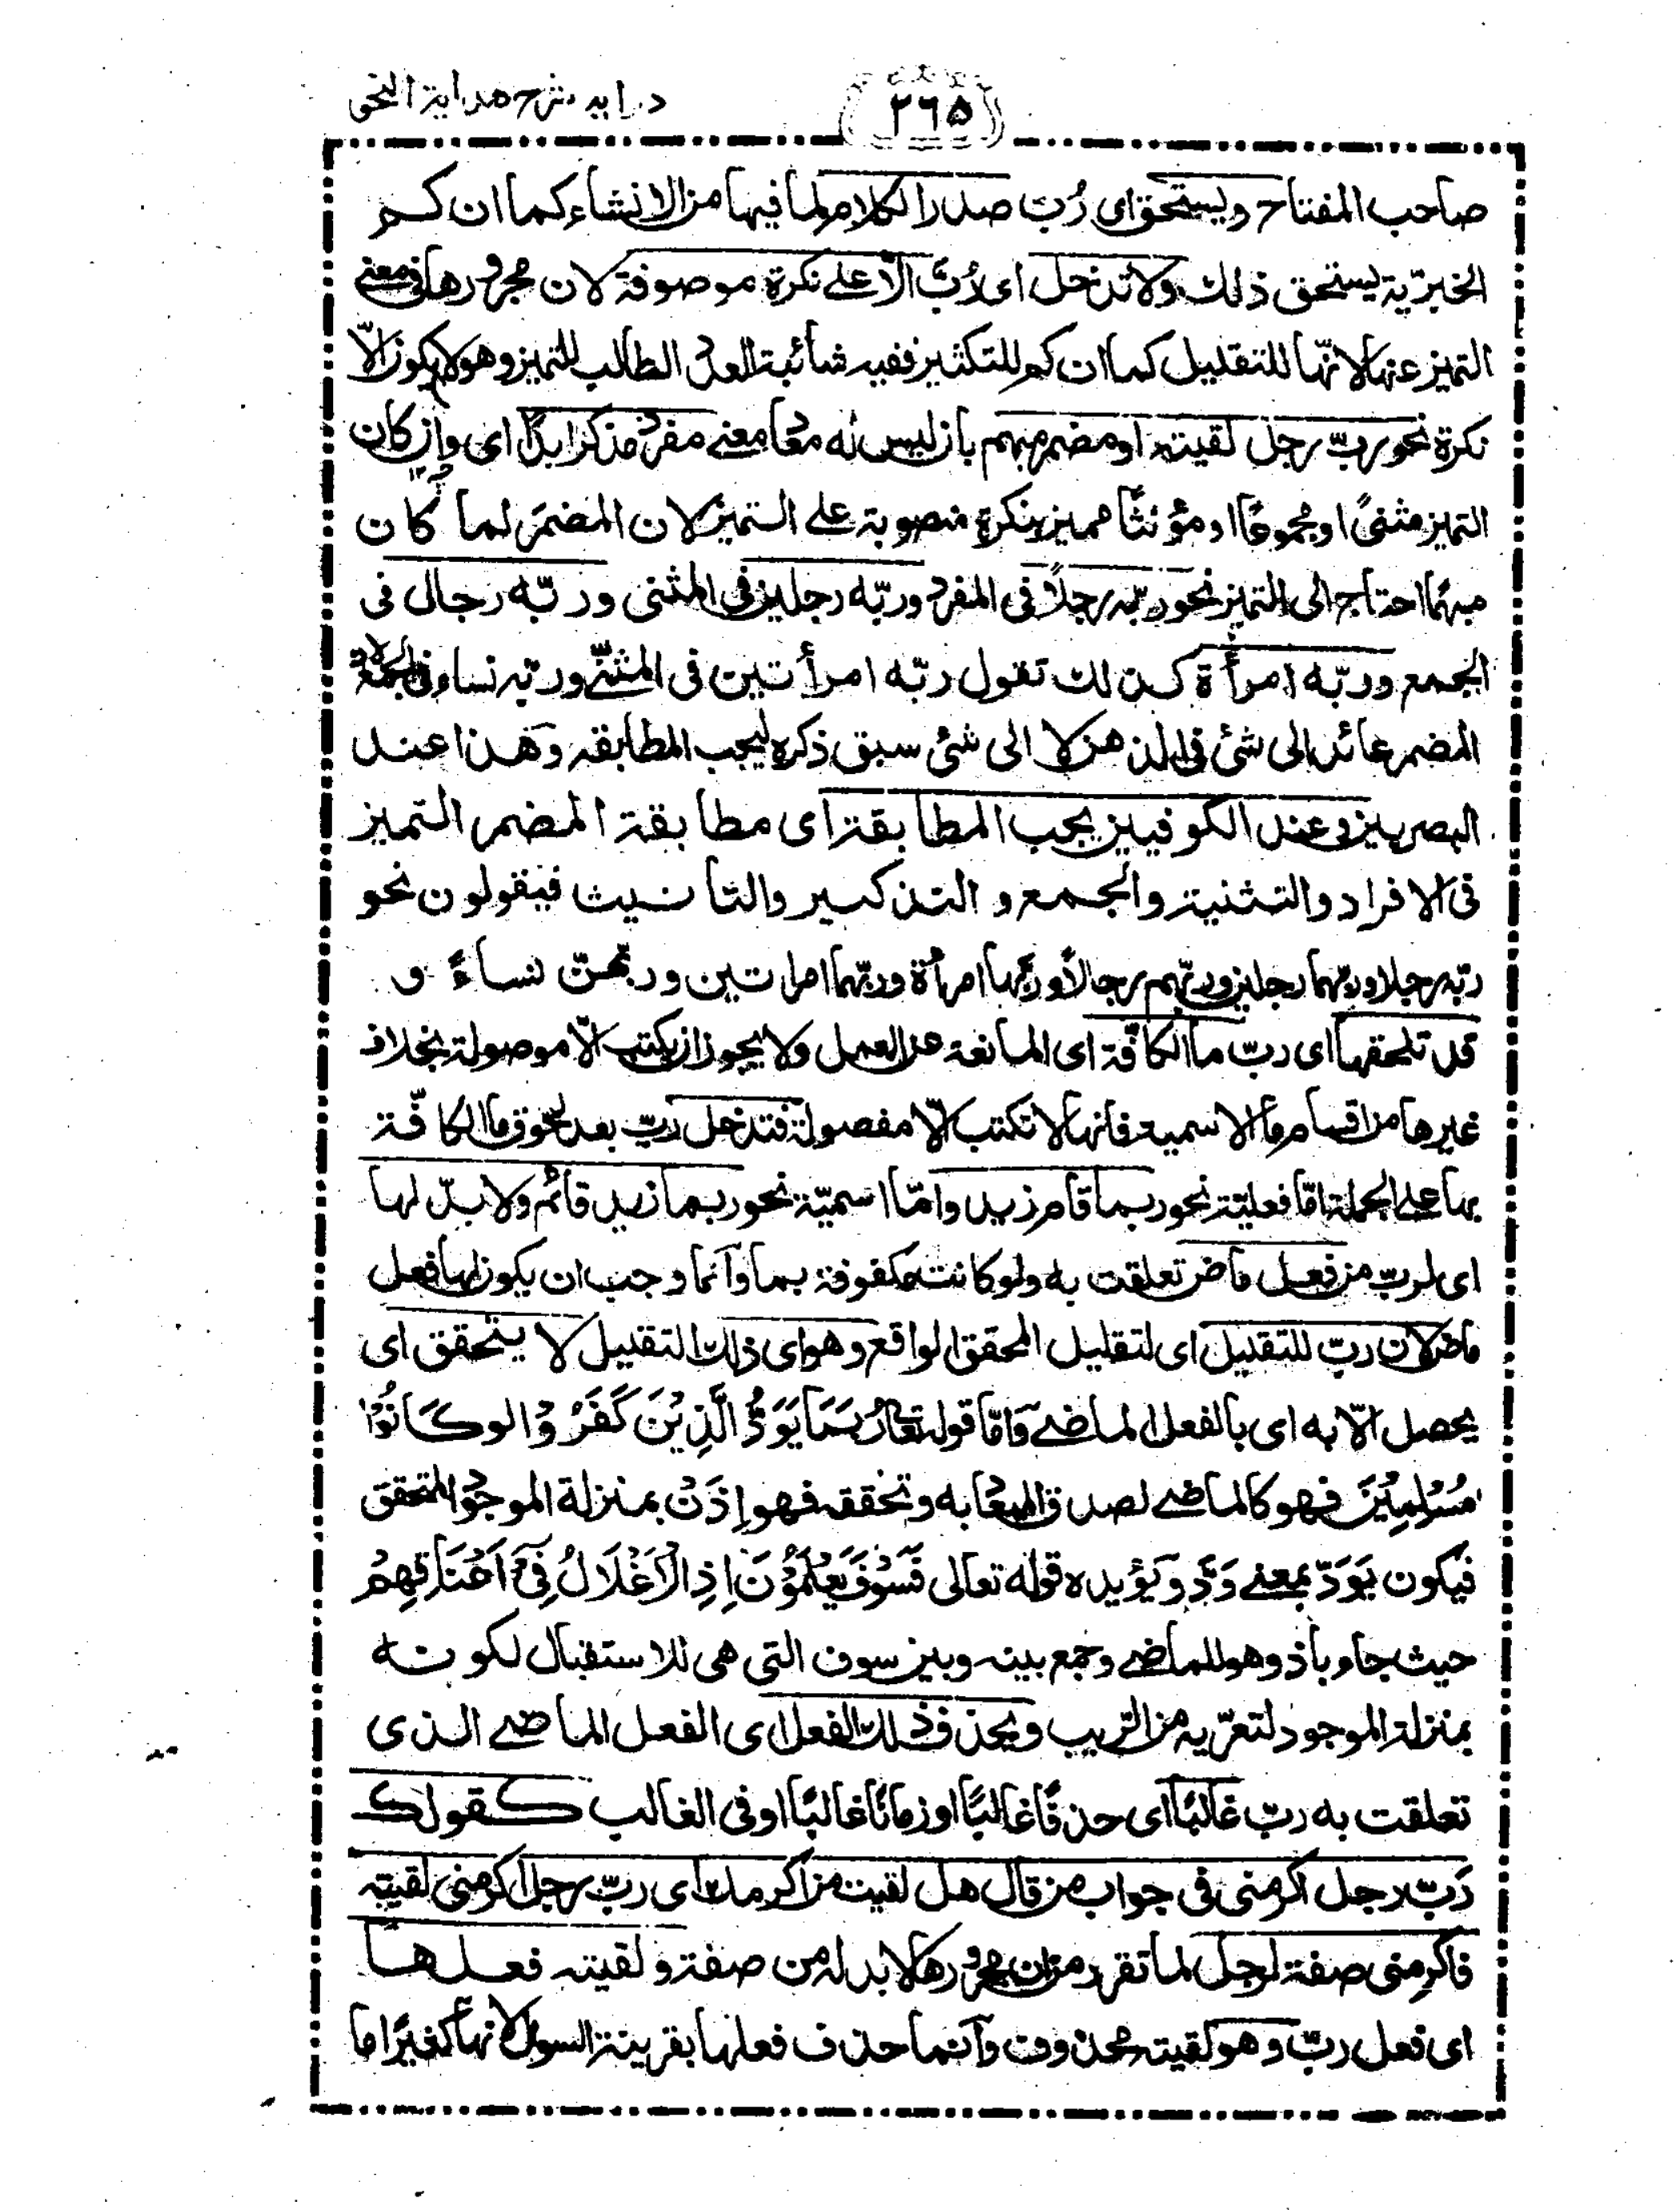 درايه شرح هداية النحو
٢٦٥
صاحب المفتاح ويستحق اى رُبّ صدر الكلام لما فيها من الانشاء كما ان كم
الخبريّة يستحق ذلك ولا تدخل اى رُبَّ الّا على نكرة موصوفة لان مجرورها فى معنے
التميز عنها لانّها للتقليل كما ان كم للتكثير ففيه شائبة العدد الطالب للتميز وهو لا يكون الّا
نكرة نحو ربّ رجل لقيته او مضمر مبهم بان ليس له معاد معنے مفرد مذكر ابدًا اى وان كان
التميز مثنىً او مجموعًا او مؤنثًا مميز بنكرةٍ منصوبة على التميز لان المضمَر لما كان
مبهمًا احتاج الى التميز نحو ربّه رجلاً فى المفرد وربّه رجلين فى المثنى وربّه رجال فى
الجمع وربّه امرأة كذلك تقول ربّه امرأتين فى المثنّے وربّه نساء فى الجمع لان
المضمر عائد الى شئ فى الذهن لا الى شئ سبق ذكره ليجب المطابقه وهذا عند
البصريين وعند الكوفيين يجب المطابقة اى مطابقة المضمر التميز
فى الافراد والتثنية والجمع و التذكير والتأنيث فيقولون نحو
ربّه رجلا وربّهما رجلين وربّهم رجالاً وربّها امرأة وربّهما امراتين وربّهنّ نساءً و
قد تلحقها اى ربّ ما الكافّة اى المانعة عن العمل ولا يجوز ان يكتب الّا موصولة بخلاف
غيرها من اقسام ما الاسمية فانها لا تكتب الّا مفصولة فتدخل ربّ بعد لحوق ما الكافّة
بها على الجملة امّا فعليّة نحو ربما قام زيد وامّا اسميّة نحو ربما زيد قائم ولا بدّ لها
اى لربّ من فعل ماض تعلقت به ولو كانت مكفوفة بما وانما وجب ان يكون لها فعل
ماض لان ربّ للتقليل اى لتقليل المحقق الواقع وهو اى ذلك التقليل لا يتحقق اى
يحصل الّا به اى بالفعل الماضے وَامّا قوله تعالى رُبَمَا يَوَدُّ الَّذِيْنَ كَفَرُوْا لو كَانُوْا
مُسْلِمِيْنَ فهو كالماضے لصدق الميعاد به وتحققه فهو اِذَنْ بمنزلة الموجود المتحقق
فيكون يَوَدّ بمعنے وَدّ ويؤيده قوله تعالى فَسَوْفَ يَعْلَمُوْنَ اِذِ الْاَغْلَالُ فِىْ اَعْنَاقِهِمْ
حيث جاء باذ وهو للماضے وجمع بينه وبين سوف التى هى للاستقبال لكونه
بمنزلة الموجود لتعرّيه من الريب ويحذف ذلك الفعل اى الفعل الماضے الذى
تعلقت به ربّ غالبًا اى حذفًا غالبًا او زمانًا غالبًا او فى الغالب كقولك
رُبّ رجل اكرمنى فى جواب من قال هل لقيت من اكرمك اى ربّ رجل اكرمنى لقيته
فاكرمنى صفة لرجل لما تقرر من ان مجرورها لا بد له من صفة ولقيته فعلها
اى فعل ربّ وهو لقيته محذوف وانما حذف فعلها بقرينة السوال لانها كثيرًا ما